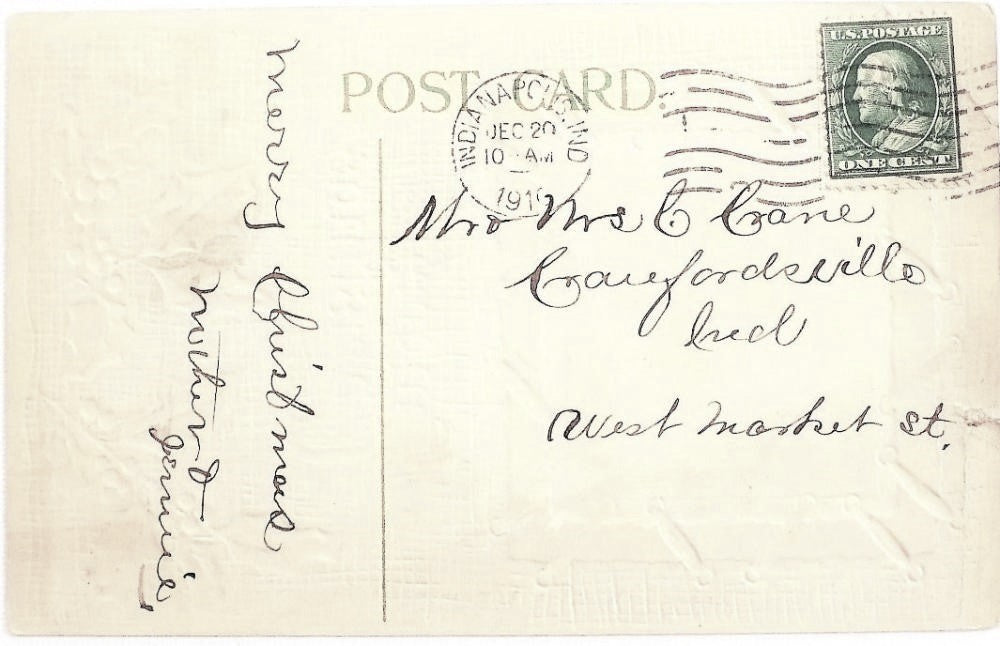 POST CARD.
INDIANAPOLIS, IND
DEC 20
10 AM
191
U.S. POSTAGE
ONE CENT
Mr & Mrs C Crane
Crawfordsville
Ind
West Market St.
Merry Christmas
Mother &
Jennie,